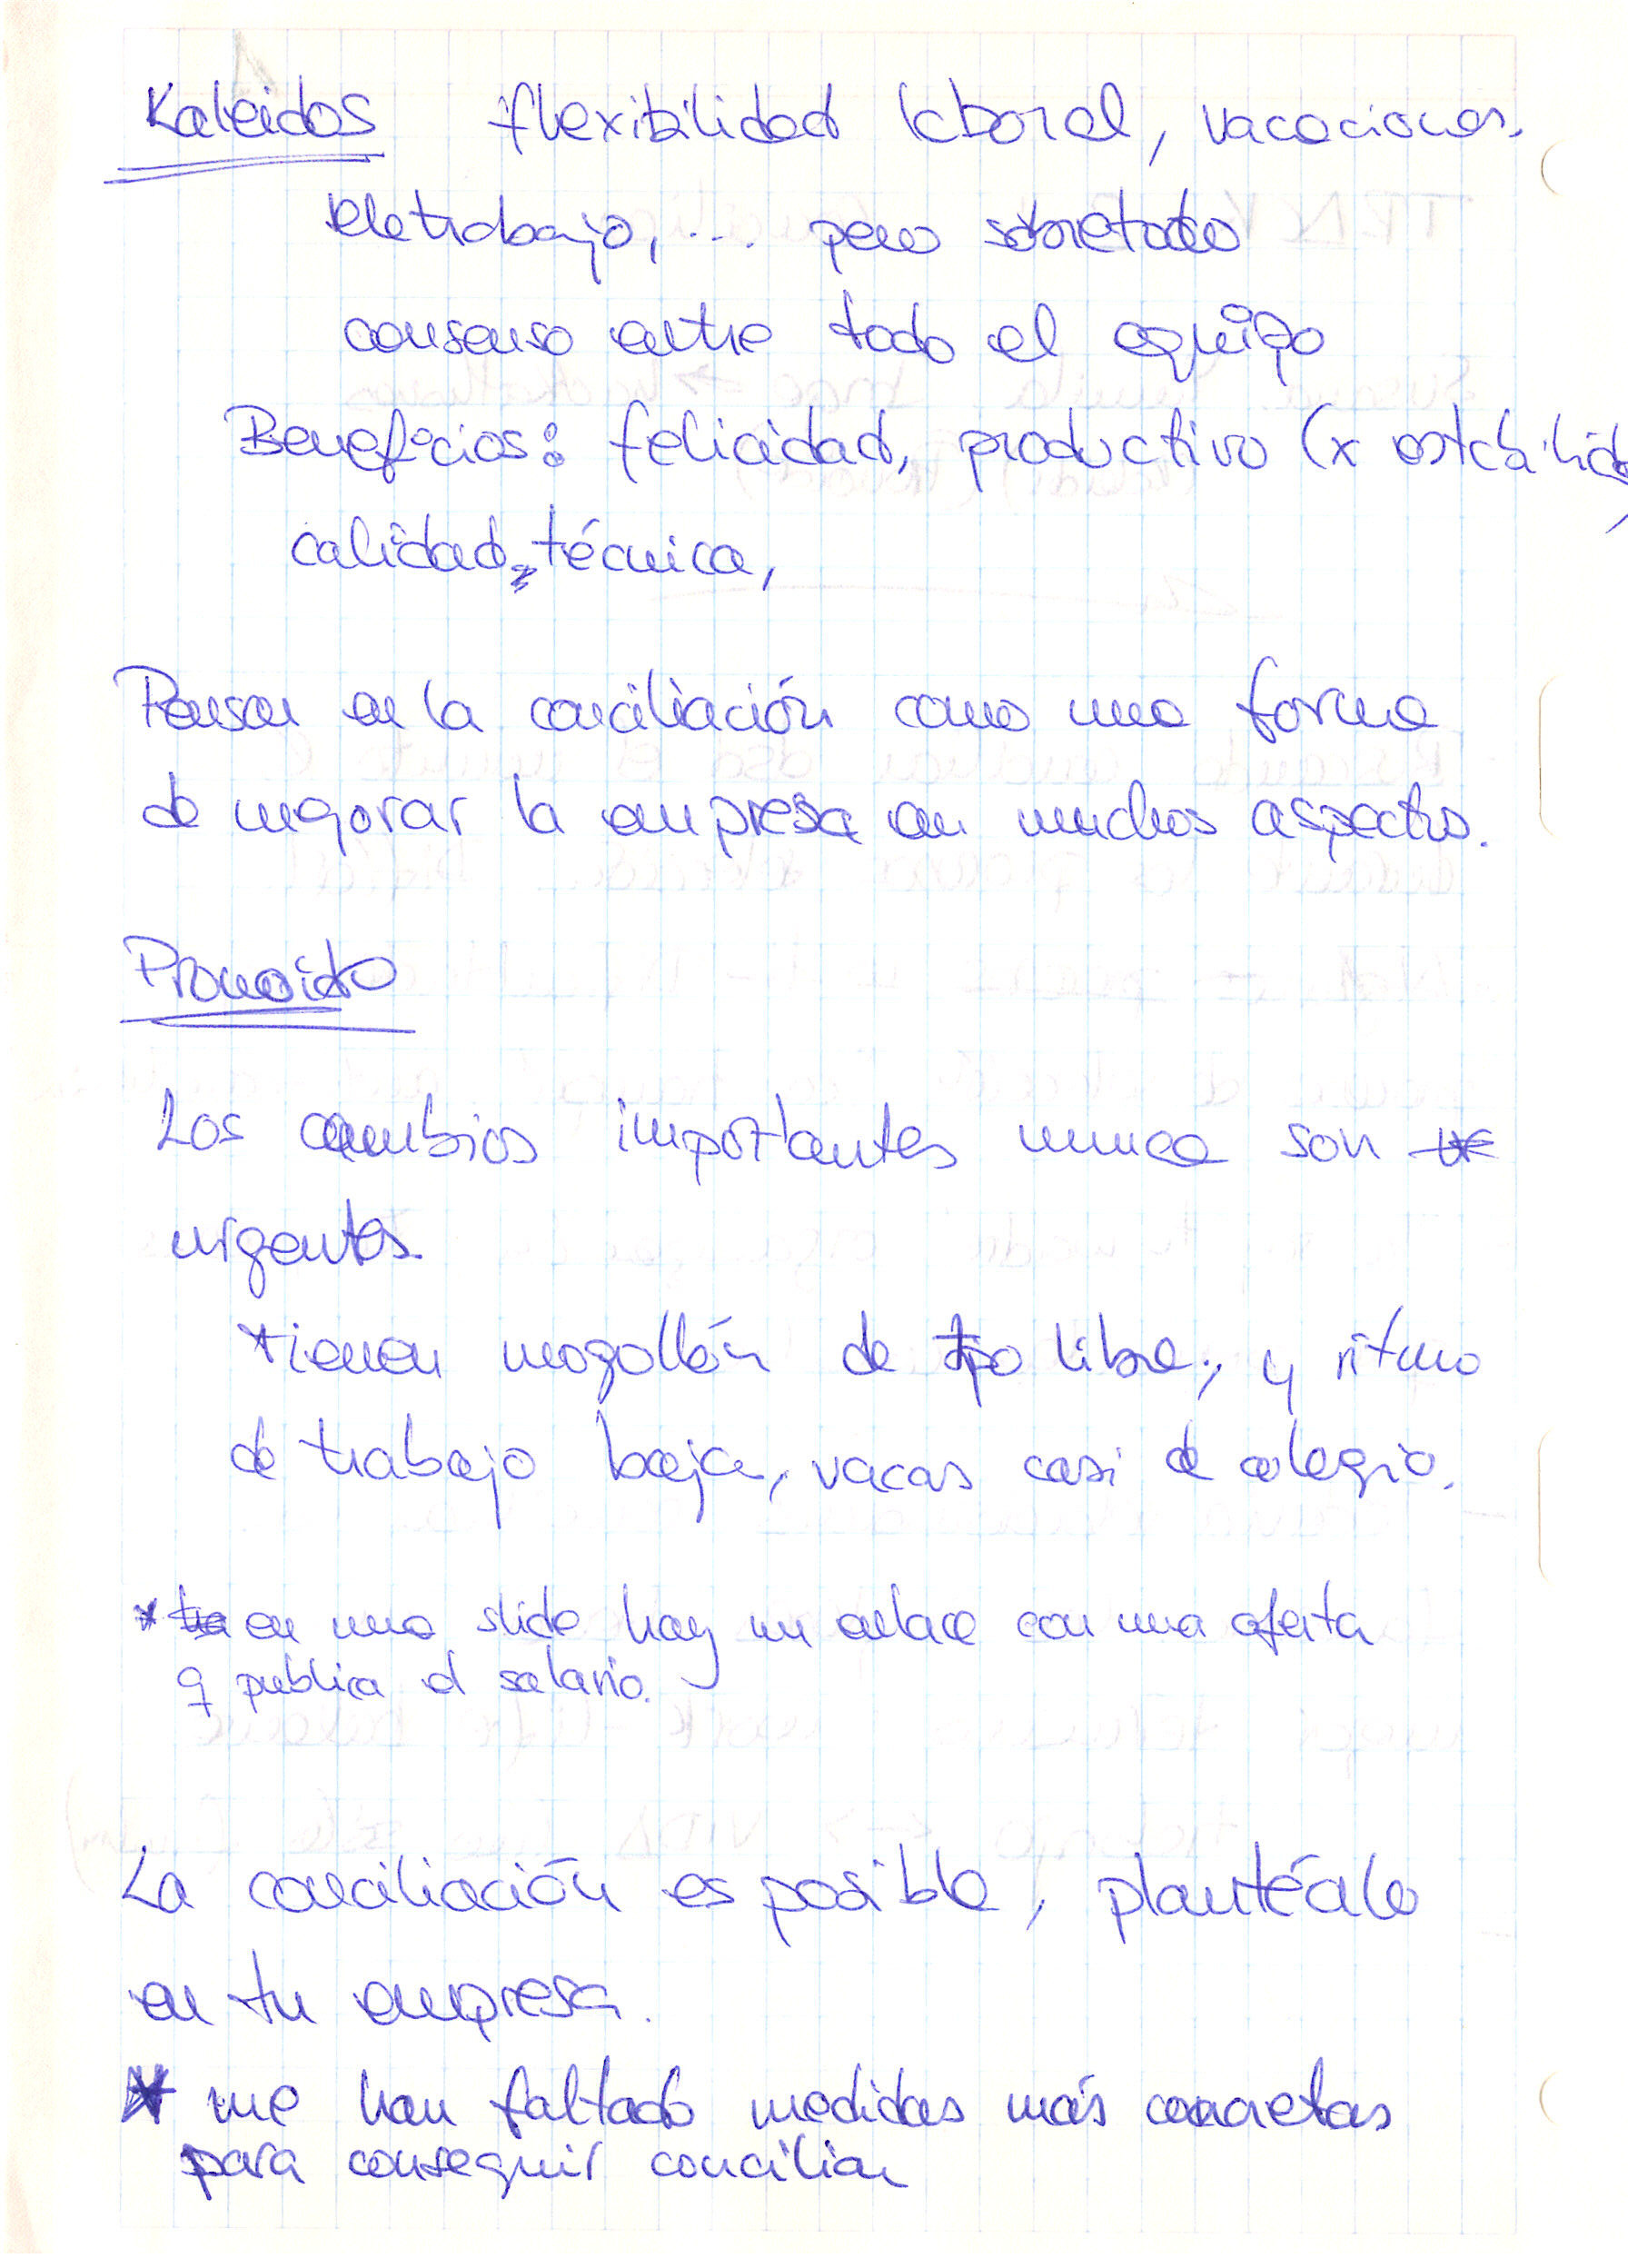 Kaleidos flexibilidad laboral, vacaciones,
teletrabajo, ... pero sobretodo
consenso entre todo el equipo
Beneficios: felicidad, productivo (x estabilid
calidad, técnica,
Pensar en la conciliación como una forma
de mejorar la empresa en muchos aspectos.
Promoido
Los cambios importantes nunca son
urgentes.
tienen mogollón de tpo libre, y ritmo
de trabajo baja, vacas casi de colegio.
* en una slide hay un enlace con una oferta
q publica el salario.
La conciliación es posible, plantéalo
en tu empresa.
* me han faltado medidas más concretas
para conseguir conciliar